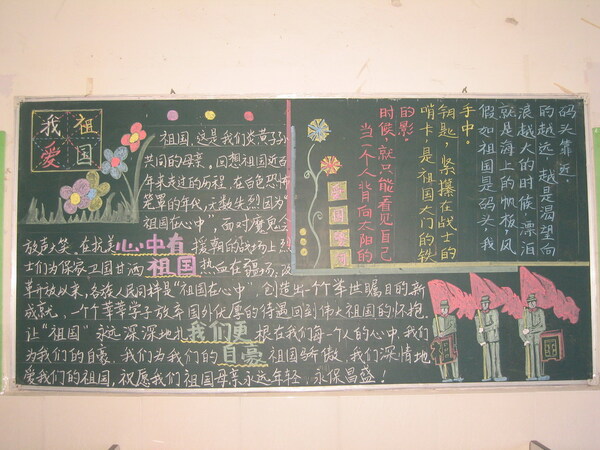 我 祖
爱 国
祖国，这是我们炎黄子孙
共同的母亲，回想祖国近百
年来走过的历程，在白色恐怖
笼罩的年代，无数先烈因为“
祖国在心中”，而对魔鬼会
放声大笑，在抗美 心中有 援朝的战场上烈
士们为保家卫国甘洒 祖国 热血在疆场，改
革开放以来，各族人民同样是“祖国在心中”，创造出一个个举世瞩目的新
成就，一个个莘莘学子放弃国外优厚的待遇回到伟大祖国的怀抱.
让“祖国”永远深深地扎 我们更 根在我们每一个人的心中，我们
为我们的自豪、我们为我们的 自豪 祖国骄傲，我们深情地
爱我们的祖国，祝愿我们祖国母亲永远年轻，永保昌盛！
码头靠近，
的越远，越是渴望向
浪越大的时候，漂泊
就是海上的帆板，风
假如祖国是码头，我
手中。
钥匙，紧攥在战士的
哨卡，是祖国大门的铁
的影。
时候，就只能看见自己
当一个人背向太阳的